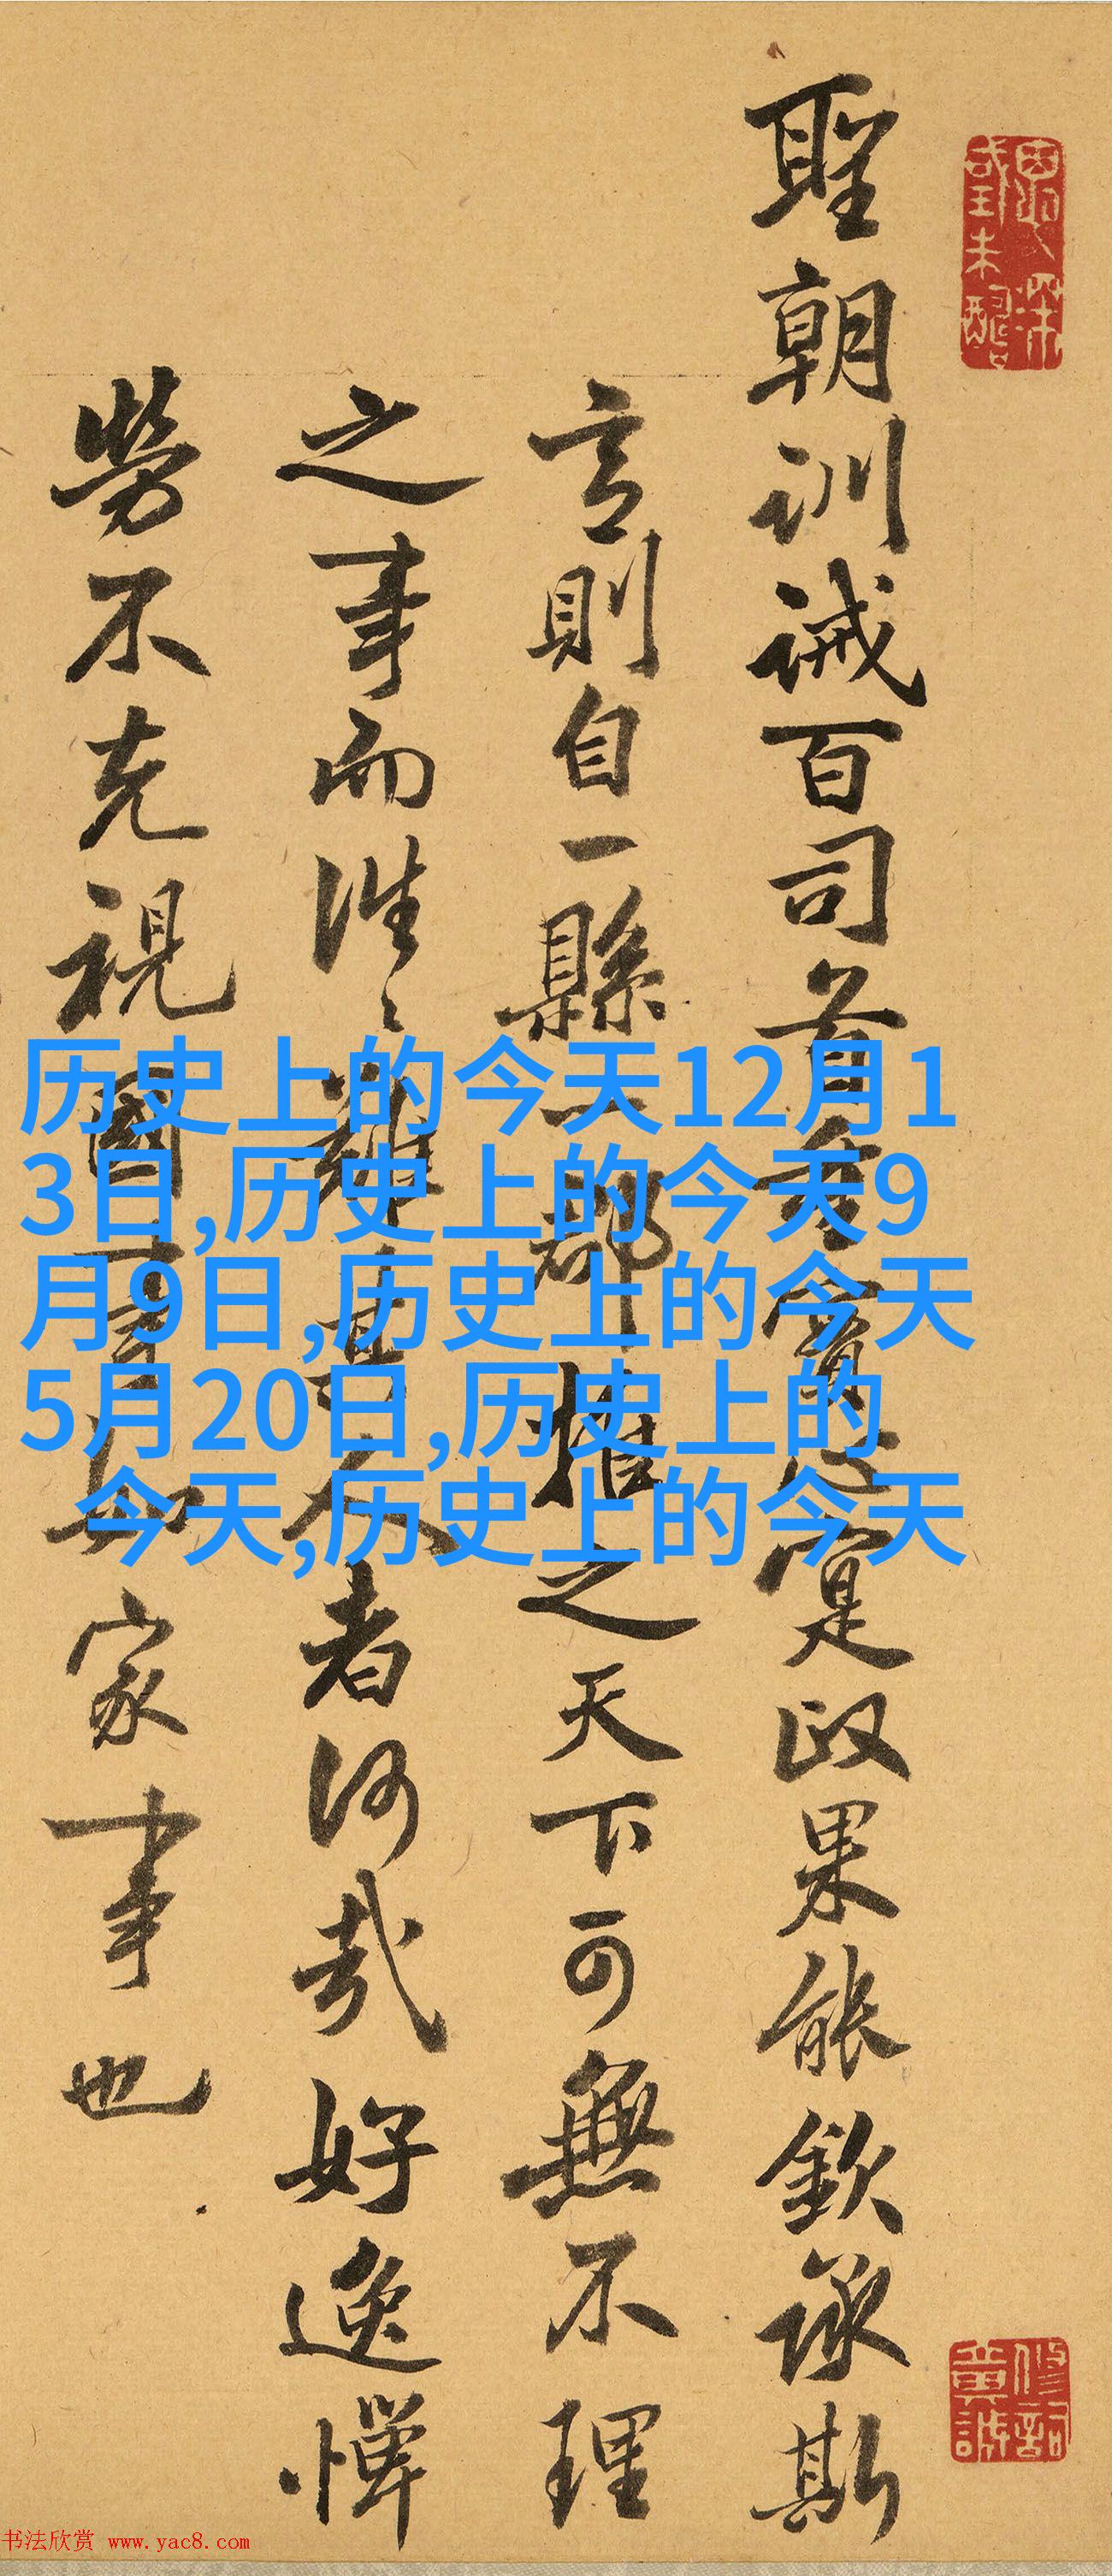 聖朝訓誡百司首重實心寔政果能欽承斯
言則自一縣一郡推之天下可無不理
之事而往々難其人者何哉好逸憚
勞不克視國事如家事也
历史上的今天12月1
3日,历史上的今天9
月9日,历史上的今天
5月20日,历史上的
今天,历史上的今天
书法欣赏 www.yac8.com